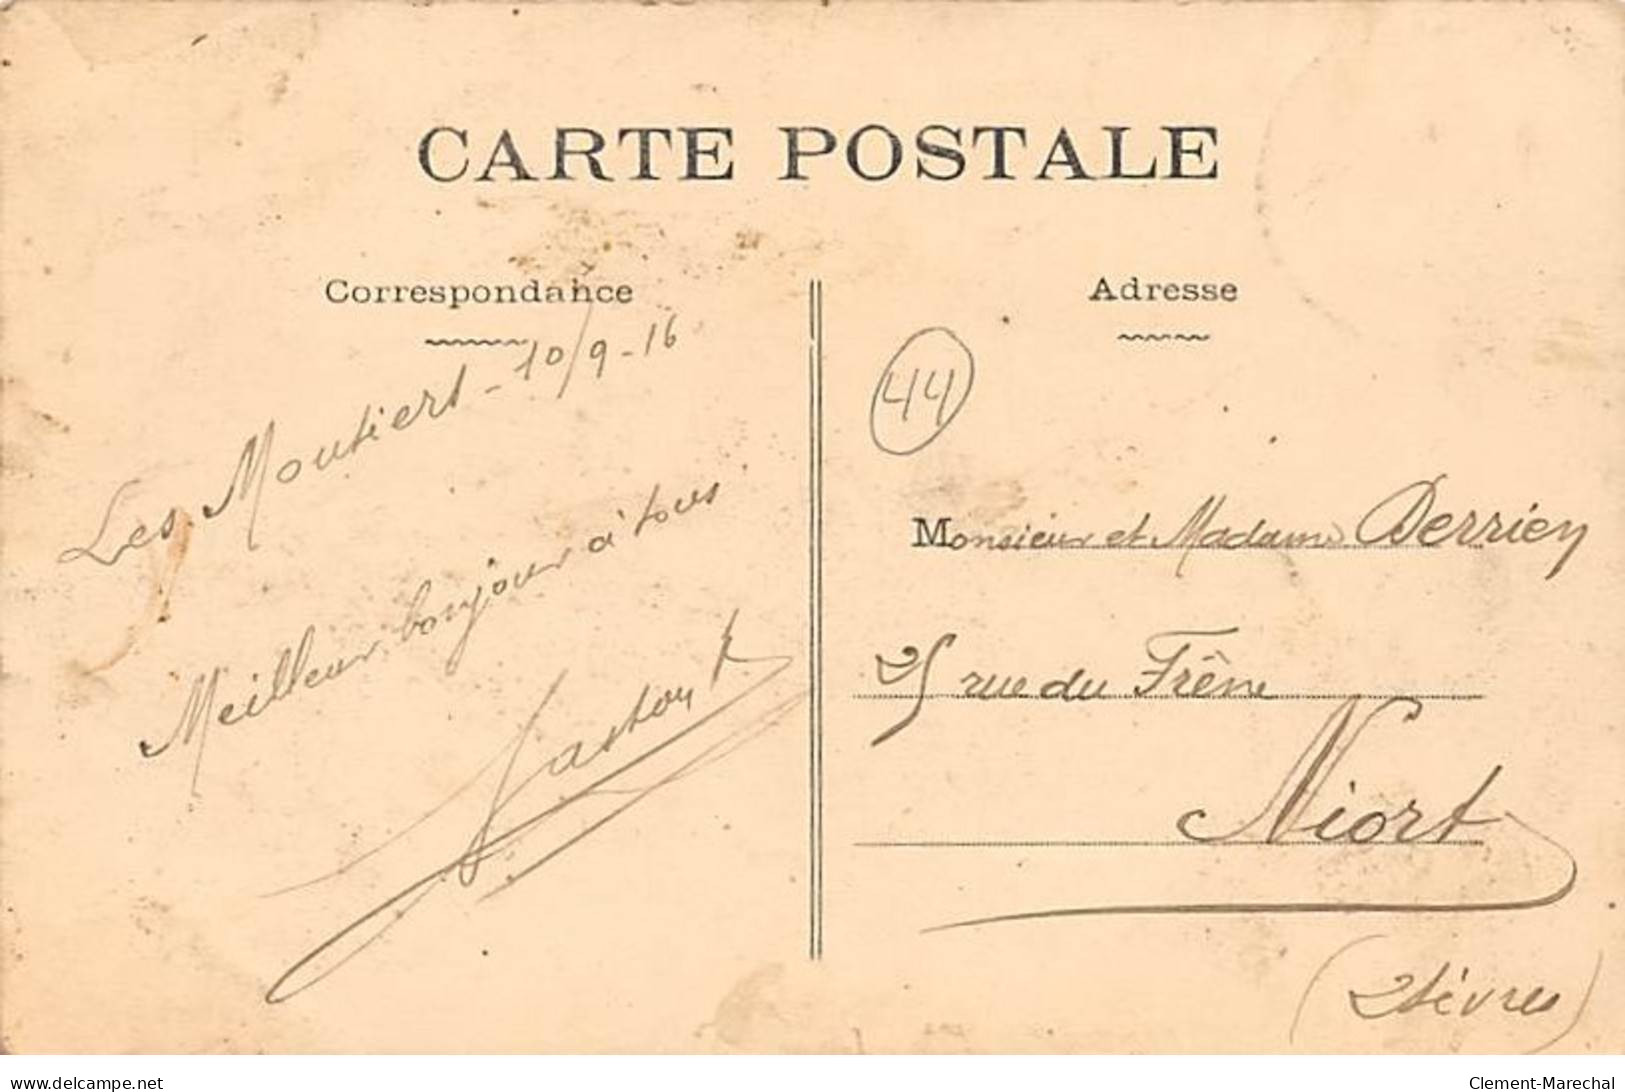 CARTE POSTALE
Correspondance
Les Moutiers - 10/9-16
Meilleur bonjour à tous
Gaston
Adresse
44
Monsieur et Madame Derrien
25 rue du Frêne
Niort
(2 Sèvres)
www.delcampe.net
Clement-Marechal